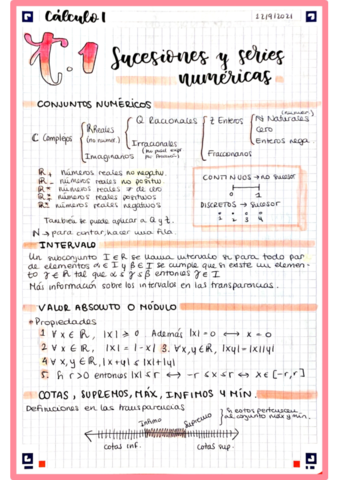 Cálculo I
12/9/2021
t.1 Sucesiones y series numéricas
CONJUNTOS NUMÉRICOS
C Complejos { R Reales (no numer.) { Q Racionales { Z Enteros { N Naturales
Cero
Enteros nega.
Fraccionarios
Irracionales
Imaginarios
números reales no negativ.
números reales no positiv.
números reales ≠ de cero
números reales positivos
números reales negativos
También se puede aplicar a Q y Z.
N → para contar, hacer una fila.
CONTINUOS → no sucesor
0 1
DISCRETOS → sucesor
1 2 3 4
INTERVALO
Un subconjunto I ∈ R se llama intervalo si para todo par
de elementos α ∈ I y β ∈ I se cumple que si existe un elemen-
to γ ∈ R tal que α ≤ γ ≤ β entonces γ ∈ I
Más información sobre los intervalos en las transparencias.
VALOR ABSOLUTO O MÓDULO
*Propiedades
1. ∀x ∈ R, |x| ≥ 0 Además |x| = 0 ↔ x = 0
2. ∀x ∈ R, |x| = |-x| 3. ∀x,y ∈ R, |xy| = |x||y|
4. ∀x,y ∈ R, |x+y| ≤ |x|+|y|
5. Si r > 0 entonces |x| ≤ r ↔ -r ≤ x ≤ r ↔ x ∈ [-r, r]
COTAS, SUPREMOS, MÁX, INFIMOS Y MÍN.
Definiciones en las transparencias
Infimo
Supremo
Si estos pertenecen al conjunto máx y mín.
cotas inf.
cotas sup.